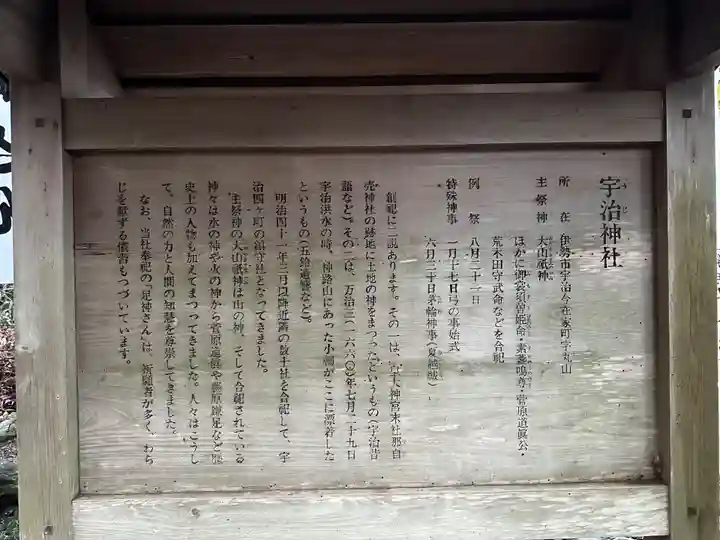 宇治神社
所在 伊勢市宇治今在家町字丸山
主祭神 大山祇神
ほかに御裳須曽姫命・素盞嗚尊・菅原道眞公・
荒木田守武命などを合祀
例祭 八月二十二日
特殊神事 一月十七日弓の事始式
六月三十日茅輪神事(夏越祓)
創祀に二説あります。その一は、宮大神宮末社那自
売神社の跡地に土地の神をまつったというもの(宇治昔
語など)。その二は、万治三(一六六〇)年七月二十九日
宇治洪水の時、神路山にあった小祠がここに漂着した
というもの(五鈴遺響など)。
明治四十一年三月以降近隣の数千社を合祀して、宇
治四ヶ町の鎮守社となってきました。
主祭神の大山祇神は山の神、そして合祀されている
神々は水の神や火の神から菅原道眞や藤原鎌足など歴
史上の人物も加えてまつってきました。人々はこうし
て、自然の力と人間の知慧を尊崇してきました。
なお、当社奉祀の「足神さん」は、祈願者が多く、わら
じを献ずる慣習もつづいています。